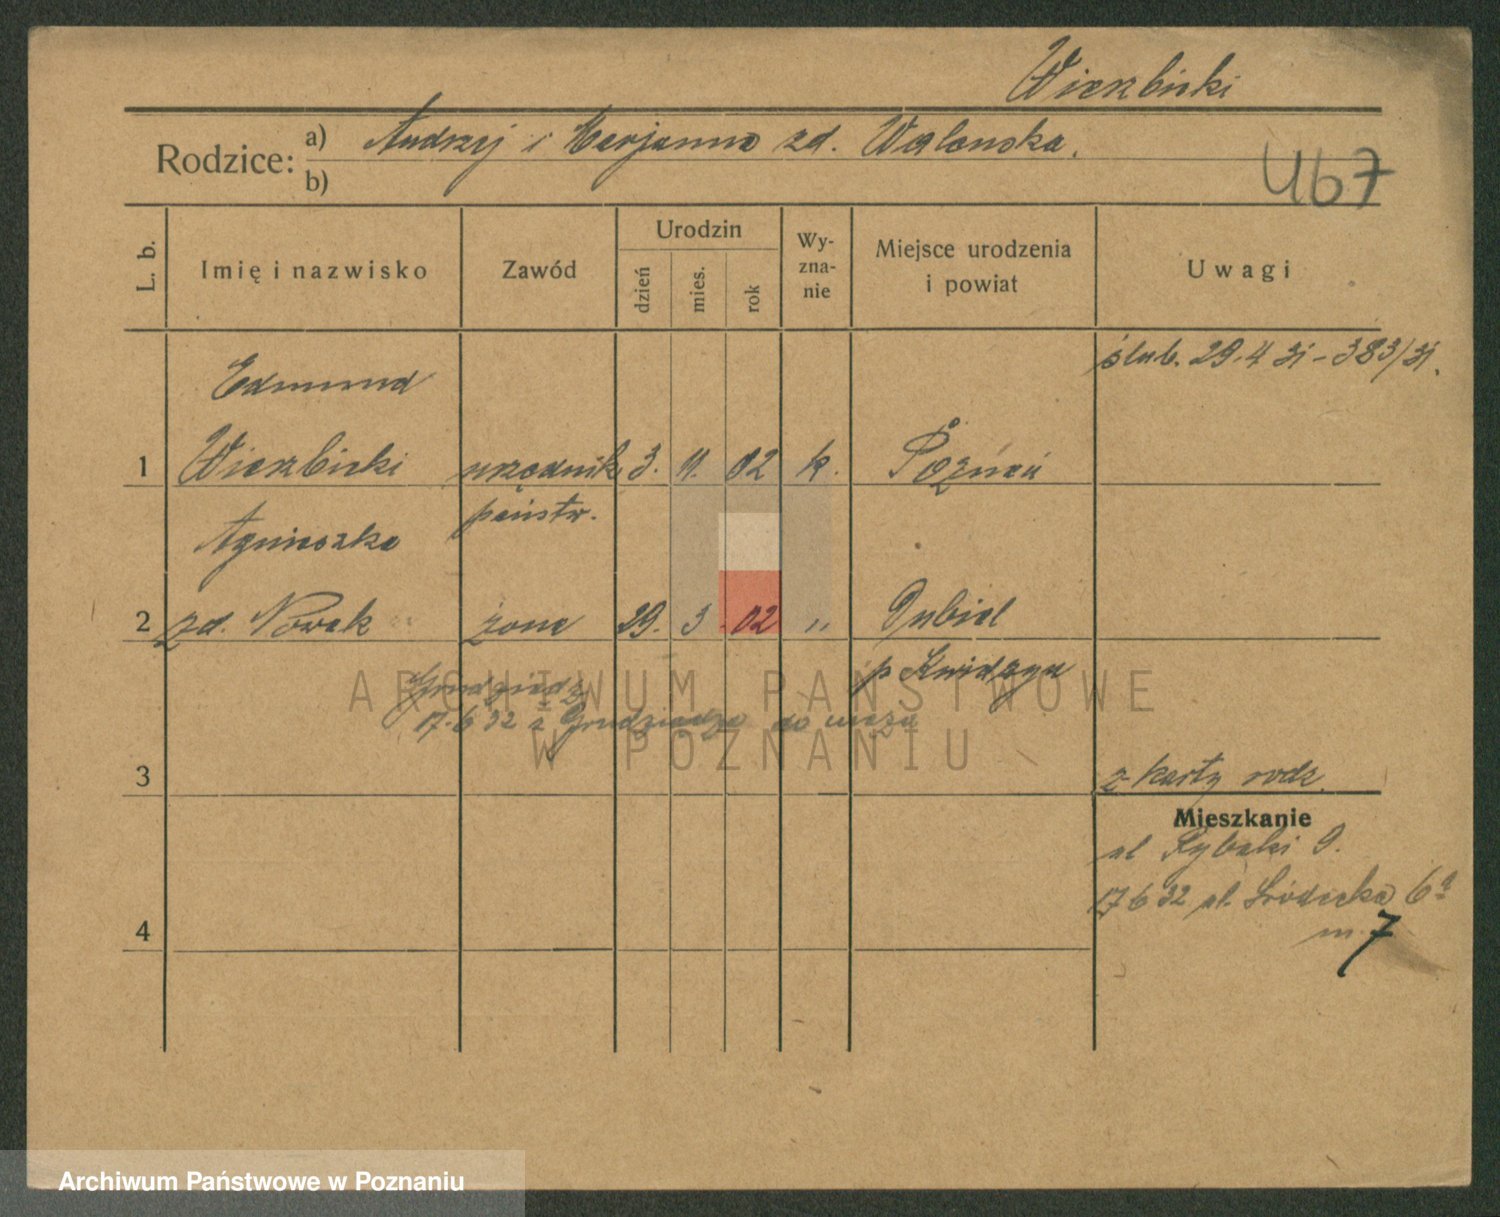 Wierzbicki
Rodzice: a) Andrzej i Marjanna zd. Walenska.
b)
467
L. b.
Imię i nazwisko
Zawód
Urodzin
dzień
mies.
rok
Wy-
zna-
nie
Miejsce urodzenia
i powiat
Uwagi
ślub. 29.4 31 - 383/31.
Edmund
1 Wierzbicki urzędnik 3. 11. 02 k. Poznań
państw.
Agnieszka
2 zd. Nowak żona 29. 3. 02 „ Dubiel
p Kwidzyn
Grudziądz
17.6 32 z Grudziądza do męża
ARCHIWUM PAŃSTWOWE
W POZNANIU
3
z karty rodz.
Mieszkanie
ul Rybaki 9.
17 6 32 ul. Śródecka 6a
m. 7
4
Archiwum Państwowe w Poznaniu